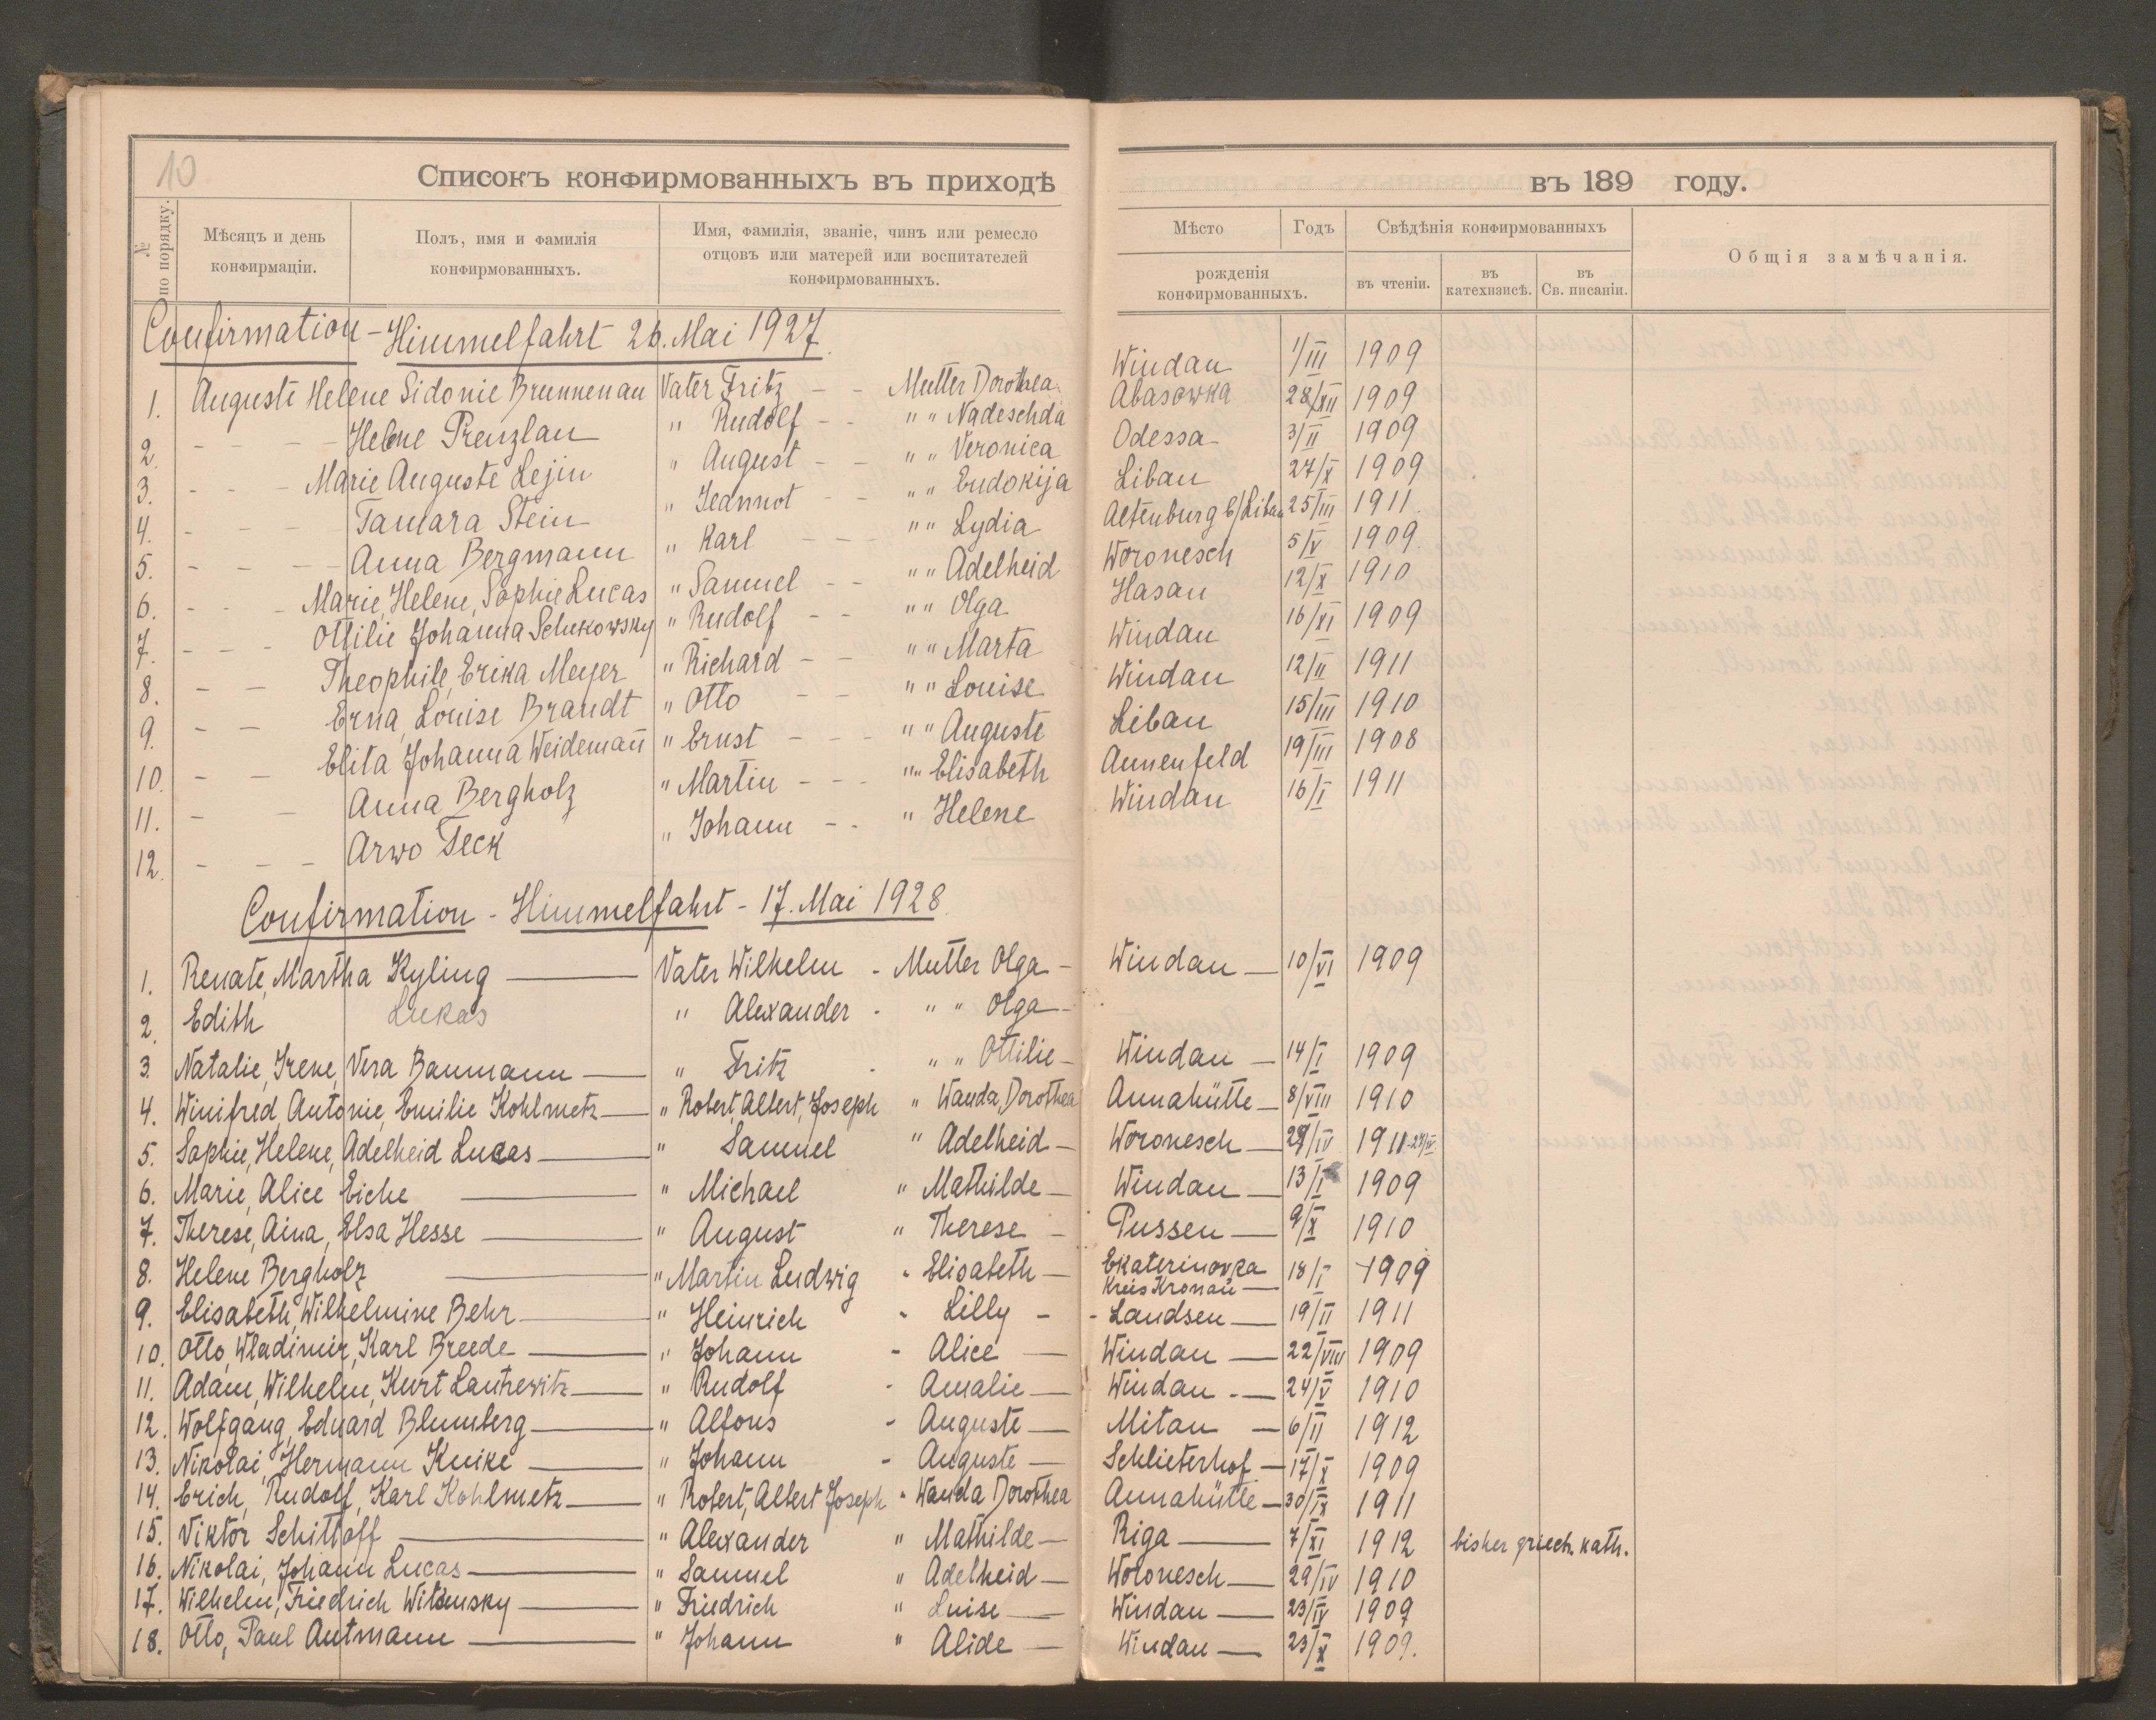 10
Списокъ конфирмованныхъ въ приходѣ въ 189 году.
№ по порядку.
Мѣсяцъ и день конфирмаціи.
Полъ, имя и фамилія конфирмованныхъ.
Имя, фамилія, званіе, чинъ или ремесло отцовъ или матерей или воспитателей конфирмованныхъ.
Мѣсто Годъ
рожденія конфирмованныхъ.
Свѣдѣнія конфирмованныхъ
въ чтеніи. въ катехизисѣ. въ Св. писаніи.
Общія замѣчанія.
Confirmation - Himmelfahrt 26. Mai 1927.
1. Auguste Helene Sidonie Brunnenau Vater Fritz - - Mutter Dorothea Windau 1/III 1909
2. - - - - Helene Prenzlau " Rudolf - - " " Nadeschda Abasowka 28/XII 1909
3. - - - Marie Auguste Lejin " August - - " " Veronica Odessa 3/II 1909
4. - - - Tamara Stein " Jeannot - - " " Eudokija Libau 27/X 1909
5. - - - - Anna Bergmann " Karl - - - " " Lydia Altenburg b/Libau 25/III 1911
6. - - - Marie, Helene, Sophie Lucas " Samuel - - " " Adelheid Woronesch 5/V 1909
7. - - - Ottilie Johanna Schukowsky " Rudolf - - " " Olga Hasau 12/X 1910
8. - - Theophile, Erika Meyer " Richard - - " " Marta Windau 16/XI 1909
9. - - Erna, Louise Brandt " Otto - - " " Louise Windau 12/II 1911
10. - - Elita Johanna Weidemañ " Ernst - - - " " Auguste Libau 15/III 1910
11. - - Anna Bergholz " Martin - - - " " Elisabeth Annenfeld 19/III 1908
12. - - - Arwo Teck " Johann - - " Helene Windau 16/I 1911
Confirmation - Himmelfahrt - 17. Mai 1928.
1. Renate, Martha Kyling Vater Wilhelm - Mutter Olga - Windau 10/VI 1909
2. Edith Lukas " Alexander - " " Olga -
3. Natalie, Irene, Vera Baumann " Fritz - " " Ottilie - Windau 14/I 1909
4. Winifred, Antonie, Emilie Kohlmetz " Robert, Albert, Joseph " Wanda, Dorothea Annahütte 8/VIII 1910
5. Sophie, Helene, Adelheid Lucas " Samuel " Adelheid - Woronesch /IV 1911
6. Marie, Alice Eiche " Michael " Mathilde - Windau 13/I 1909
7. Therese, Aina, Elsa Hesse " August " Therese - Pussen 9/X 1910
8. Helene Bergholz " Martin Ludwig - Elisabeth - Ekaterinovka Kreis Kronau 18/I 1909
9. Elisabeth, Wilhelmine Behr " Heinrich - Lilly - - Landsen 19/II 1911
10. Otto, Wladimir, Karl Breede " Johann - Alice - Windau 22/VIII 1909
11. Adam, Wilhelm, Kurt Lautzewitz " Rudolf - Amalie - Windau 24/V 1910
12. Wolfgang, Eduard Blumberg " Alfons - Auguste - Mitau 6/II 1912
13. Nikolai, Hermann Knike " Johann - Auguste - Schlieterhof 17/X 1909
14. Erich, Rudolf, Karl Kohlmetz " Robert, Albert Joseph - Wanda Dorothea Annahütte 30/IX 1911
15. Viktor Schittoff " Alexander " Mathilde - Riga 7/XI 1912 bisher griech. kath.
16. Nikolai, Johann Lucas " Samuel " Adelheid - Woronesch 29/IV 1910
17. Wilhelm, Friedrich Witensky " Friedrich " Luise - Windau 23/IV 1909
18. Otto, Paul Autmann " Johann " Alide - Windau 23/X 1909.